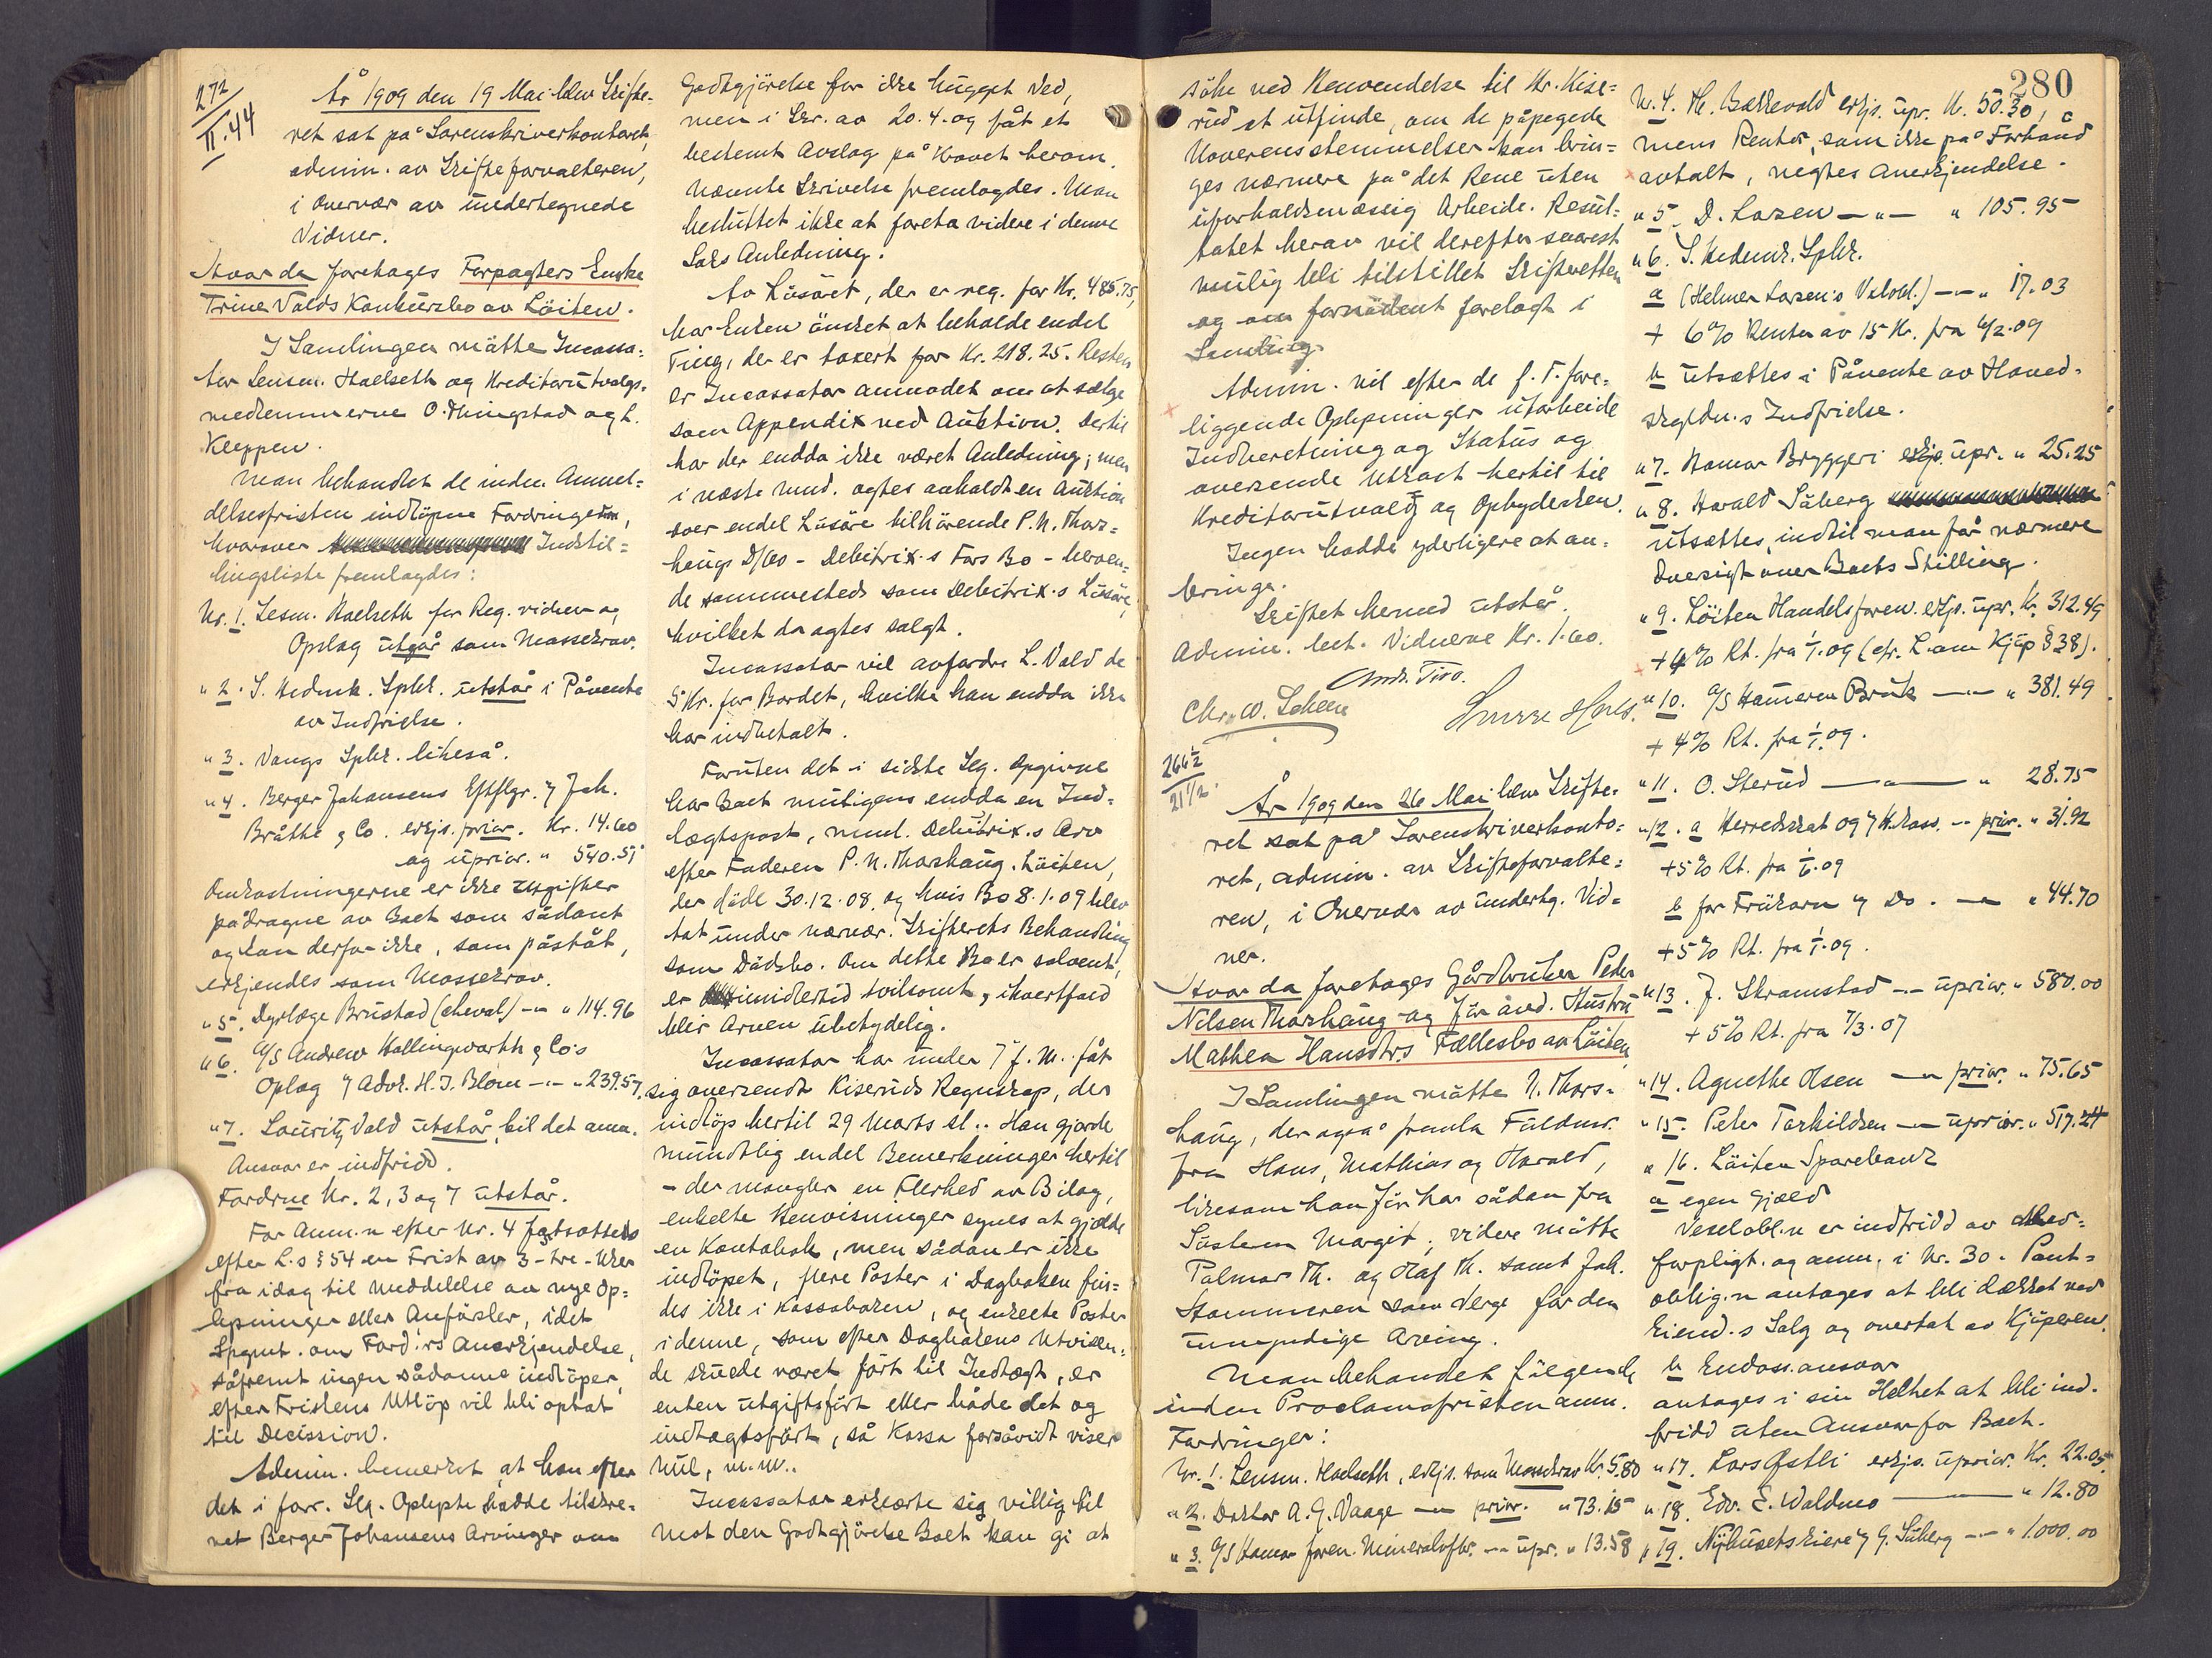 272
II.44
År 1909 den 19 Mai blev Skifte-
ret sat på Sorenskriverkontoret,
admin. av Skifteforvalteren,
i Overvær av undertegnede
Vidner.
Hvor da foretoges Forpagters Enke
Trine Volds Konkursbo av Löiten.
I Samlingen mötte Incassa-
tor Lensm. Hoelseth og Kreditorutvalgs-
medlemmerne O. Thingstad og L.
Kleppen.
Man behandlet de inden Anmel-
delsesfristen indlöpne Fordringer,
hvorover Indstil-
lingsliste fremlagdes:
Nr. 1. Lesm. Hoelseth for Reg. vidner og
Opslag utgår som Massekrav.
" 2. S. Hedmk. Spbk. utstår i Påvente
av Indfrielse.
" 3. Vangs Spbk. likeså.
" 4. Berger Johansens Eftflgr. v/ Joh.
Bråthe & Co. erkjs. prior. Kr. 14.60
og uprior. " 540.51
Omkostningerne er ikke Utgifter
pådragne av Boet som sådant
og kan derfor ikke, som påstått,
erkjendes som Massekrav.
" 5. Dyrlæge Brustad (cheval) -"- " 114.96
" 6. A/S Andrew Hollingworth & Co's
Oplag v/ Adv. H. J. Blom -"- " 239.57.
" 7. Lauritz Vold utstår, til det anm.
Ansvar er indfridd.
Fordrne Nr. 2, 3 og 7 utstår.
For Anm.n efter Nr. 4 fastsattes
efter L.s § 54 en Frist av 3 - tre - Uker
fra idag til Meddelelse av nye Op-
lysninger eller Anförsler, idet
Spsmt. om Ford:rs Anerkjendelse,
såfremt ingen sådanne indlöper,
efter Fristens Utlöp vil bli optat
til Decission.
Admin. bemerket, at han efter
det i forr. Slg. Oplyste hadde tilskre-
vet Berger Johansens Arvinger om
Godtgjörelse for ikke hugget Ved,
men i Skr. av 20.4. og fåt et
bestemt Avslag på Kravet herom.
Nævnte Skrivelse fremlagdes. Man
besluttet ikke at foreta videre i denne
Saks Anledning.
Av Lösöret, der er reg. for Kr. 485.75,
har Enken önsket at beholde endel
Ting, der er taxert for Kr. 218.25. Resten
er Incassator anmodet om at sælge
som Appendix ved Auktion. Dertil
har der endda ikke været Anledning; men
i næste Mnd. agtes avholdt en Auktion
over endel Lösöre tilhörende P. N. Thors-
haugs D/bo - Debitrix.s Fars Bo - beroen-
de sammesteds som Debitrix.s Lösöre,
hvilket da agtes solgt.
Incassator vil avfordre L. Vold de
5 Kr. for Bordet, hvilke han endda ikke
har indbetalt.
Foruten det i sidste Slg. opgivne
har Boet muligens endda en Ind-
tægtspost, nml. Debitrix.s Arv
efter Faderen P. N. Thorshaug. Löiten,
der döde 30.12.08. og hvis Bo 8.1.09 blev
tat under nærvær. Skifterets Behandling
som Dödsbo. Om dette Bo er solvent,
er imidlertid tvilsomt, ihvertfald
blir Arven ubetydelig.
Incassator har under 7 f. M. fåt
sig oversendt Kiseruds Regnskap, der
indlöp hertil 29 Marts sl.. Han gjorde
mundtlig endel Bemerkninger hertil
- der mangler en Flerhed av Bilag,
enkelte Henvisninger synes at gjælde
en Kontobok, men sådan er ikke
indlöpet, flere Poster i Dagboken fin-
des ikke i Kassaboken, og enkelte Poster
i denne, som efter Dagbokens Utvisen-
de skulde været fört til Indtægt, er
enten utgiftsfört eller både det og
indtægtsfört, så Kassa forsåvidt viser
Nul, m.m..
Incassator erklærte sig villig til
mot den Godtgjörelse Boet kan gi at
söke ved Henvendelse til Hr. Kise-
rud at utfinde, om de påpegede
Uoverensstemmelser kan brin-
ges nærmere på det Rene uten
uforholdsmæssig Arbeide. Resul-
tatet herav vil derefter snarest
mulig bli tilstillet Skifteretten
og om fornödent forelagt i
Samling.
Admin. vil efter de f. T. fore-
liggende Oplysninger utarbeide
Indberetning og Status og
oversende Utkast hertil til
Kreditorutvalg og Opbyderen.
Ingen hadde yderligere at an-
bringe.
Skiftet hermed utstår.
Admin. bet. Vidnerne Kr. 1.60.
Andr. Tiro.
Chr. W. Scheen
266½
21½.
År 1909 den 26 Mai blev Skifte-
ret sat på Sorenskriverkonto-
ret, admin. av Skifteforvalte-
ren, i Overvær av undertg. Vid-
ner.
Hvor da foretoges Gårdbruker Peder
Nilsen Thorshaug og för avd. Hustru
Mathea Hansdtrs Fællesbo av Löiten.
I Samlingen mötte N. Thors-
haug, der også fremla Fuldmr.
fra Hans, Mathias og Harald,
likesom han för har sådan fra
Söstern Margit; videre mötte
Palmar Th. og Olaf Th. samt Joh.
Stommeren som Verge for den
umyndige Arving.
Man behandlet fölgende
inden Proclamafristen anm.
Fordringer:
Nr. 1. Lensm. Hoelseth, erkjs. som Massekrav Kr. 5.80
" 2. Doktor A. G. Vaage -"- prior. " 73.15
" 3. A/S Hamar foren. Mineralvfbr. -"- upr. " 13.58
280
Nr. 4. M. Bækkevold erkjs. upr. Kr. 50.30,
mens Renter, som ikke på Forhånd
avtalt, negtes Anerkjendelse.
" 5. D. Larsen -"- " 105.95
" 6. S. Hedmk. Spbk.
a (Helmer Larsen's Veksl.) -"- " 17.03
+ 6% Renter av 15 Kr. fra 6/2.09
b utsættes i Påvente av Hoved-
skyldn.s Indfrielse.
" 7. Hamar Bryggeri erkjs. upr. " 25.25
" 8. Harald Såberg
utsættes, indtil man får nærmere
Oversigt over Boets Stilling.
" 9. Löiten Handelsforen. erkjs. upr. Kr. 312.49
+ 4% Rt. fra 1/1.09 (cfr. L. om Kjöp § 38).
" 10. A/S Hammeren Bruk -"- " 381.49
+ 4% Rt. fra 1/1.09.
" 11. O. Sterud -"- " 28.75
" 12. a Herredskat og v/ H.kass. -"- prior. " 31.92
+ 5% Rt. fra 1/1.09
b for Frökorn v/ Do. -"- " 44.70
+ 5% Rt. fra 1/1.09.
" 13. J. Skramstad -"- uprior. " 580.00
+ 5% Rt. fra 7/3.07
" 14. Agnethe Olsen -"- prior. " 75.65
" 15. Peter Torkildsen -"- uprior. " 517.24
" 16. Löiten Sparebank
a egen Gjæld
Vekselobl.n er indfridd av Med-
forpligt. og anm. i Nr. 30. Pant-
oblig.n antages at bli dækket ved
Eiend.s Salg og overtat av Kjöperen.
b Endoss.ansvar
antages i sin Helhet at bli ind-
fridd uten Ansvar for Boet.
" 17. Lars Østli erkjs. uprior. Kr. 22.05
" 18. Edv. E. Waldmo " 12.80
" 19. Nyhusets Eiere v/ G. Såberg -"- " 1.000.00